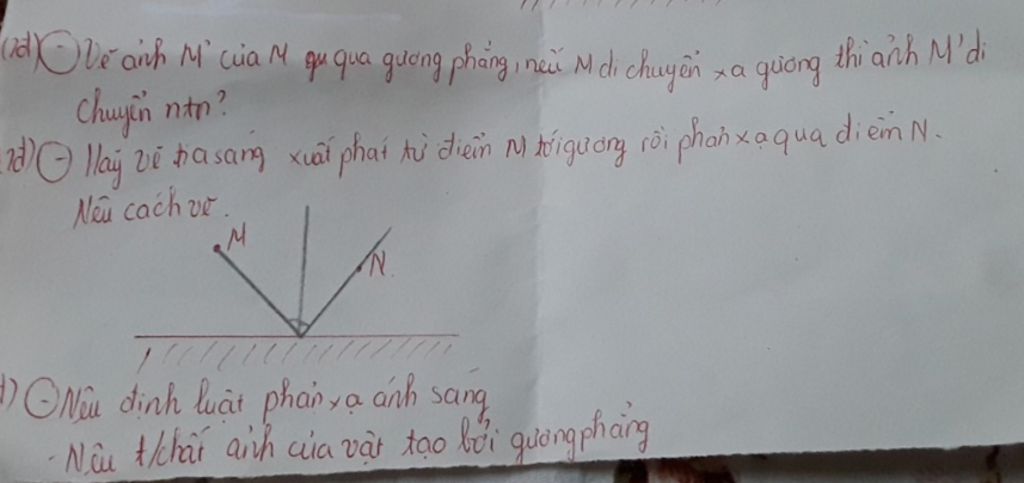 (2đ) - Vẽ ảnh M' của M qu qua gương phẳng, nếu M di chuyển xa gương thì ảnh M' di
chuyển ntn?
2đ) - Hãy vẽ tia sáng xuất phát từ điểm M tới gương rồi phản xạ qua điểm N.
Nêu cách vẽ.
M
N.
đ) - Nêu định luật phản xạ ánh sáng
- Nêu t/chất ảnh của vật tạo bởi gương phẳng